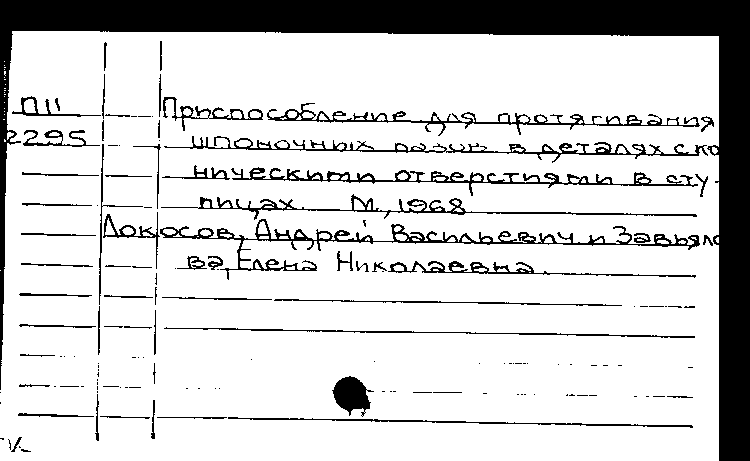 П11 Приспособление для протягивания
2295 шпоночных пазов в деталях с ко
ническими отверстиями в сту-
пицах. М., 1968
Локосов, Андрей Васильевич и Завьяло
ва, Елена Николаевна.